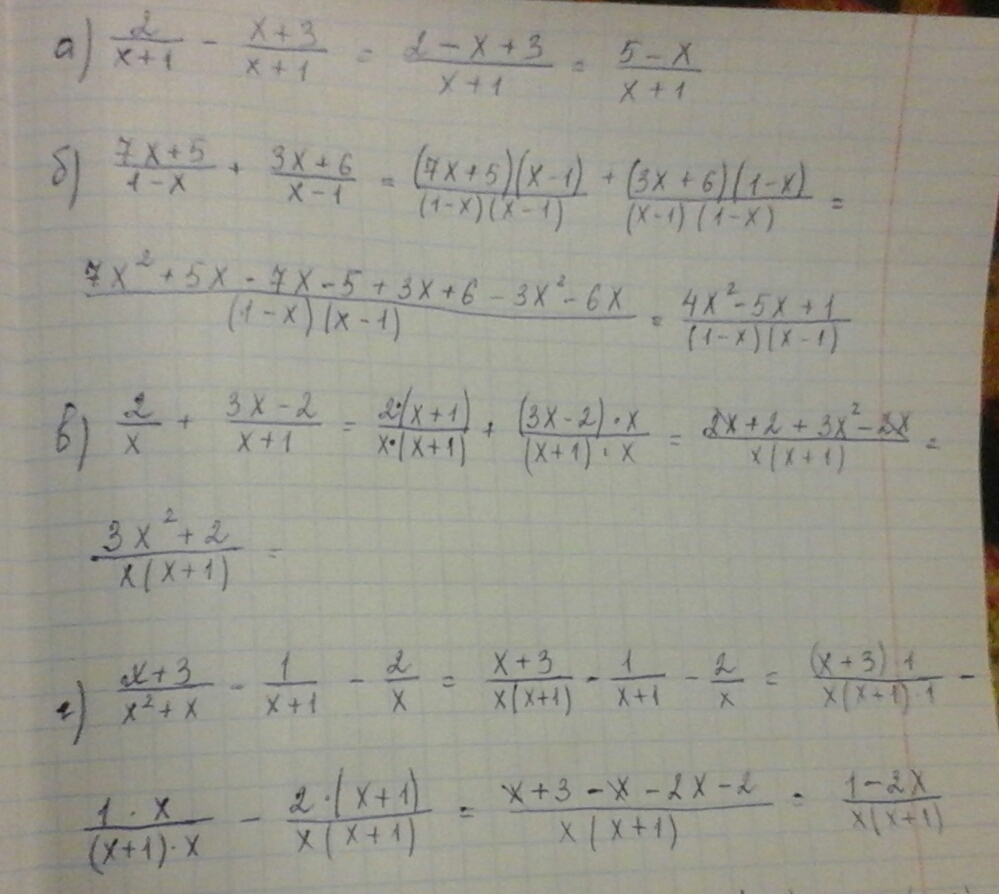 а) 2/(x+1) - (x+3)/(x+1) = (2-x+3)/(x+1) = (5-x)/(x+1)
б) (7x+5)/(1-x) + (3x+6)/(x-1) = (7x+5)(x-1)/((1-x)(x-1)) + (3x+6)(1-x)/((x-1)(1-x)) =
(7x²+5x-7x-5+3x+6-3x²-6x)/((1-x)(x-1)) = (4x²-5x+1)/((1-x)(x-1))
в) 2/x + (3x-2)/(x+1) = 2·(x+1)/(x·(x+1)) + (3x-2)·x/((x+1)·x) = (2x+2+3x²-2x)/(x(x+1)) =
(3x²+2)/(x(x+1)) =
г) (x+3)/(x²+x) - 1/(x+1) - 2/x = (x+3)/(x(x+1)) - 1/(x+1) - 2/x = (x+3)·1/(x(x+1)·1) -
1·x/((x+1)·x) - 2·(x+1)/(x(x+1)) = (x+3-x-2x-2)/(x(x+1)) = (1-2x)/(x(x+1))